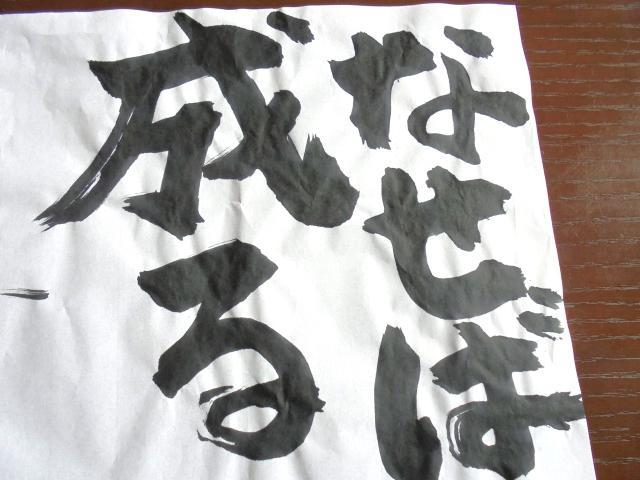 なせば
成る